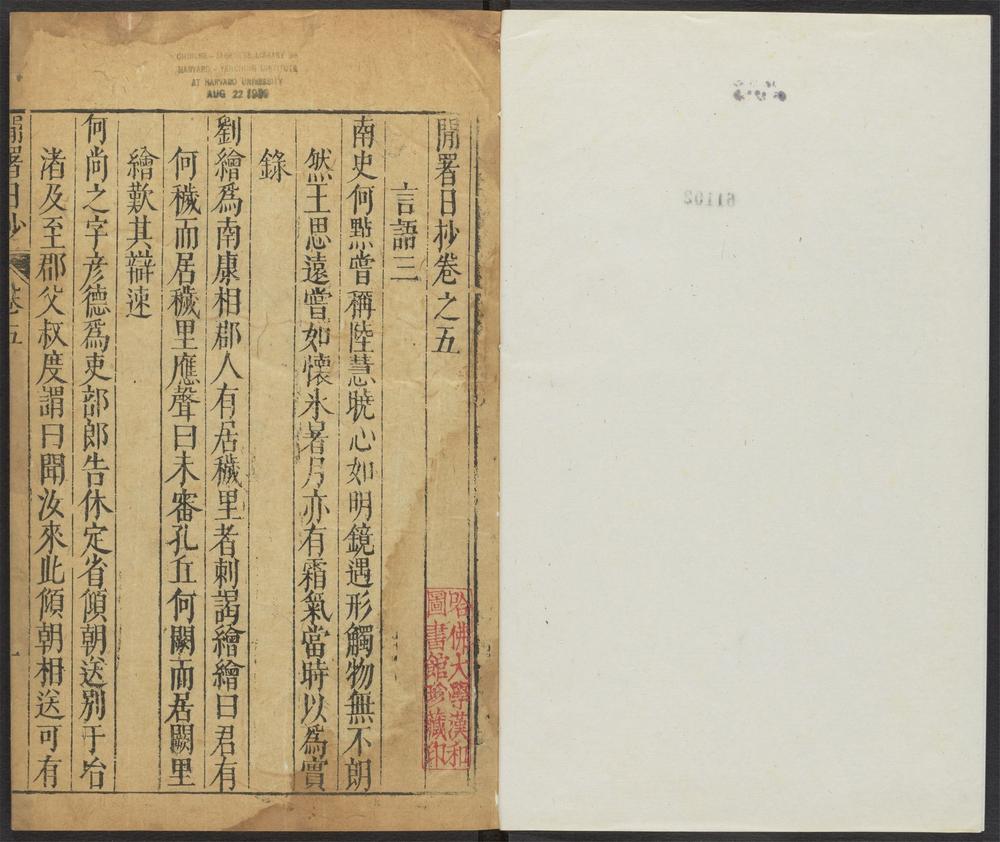 閒署日抄卷之五
言語三
南史何㸃甞稱陸慧曉心如明鏡遇形觸物無不朗
然王思遠甞如懷氷暑月亦有霜氣當時以爲實
錄
劉繪爲南康相郡人有居穢里者刺謁繪繪曰君有
何穢而居穢里應聲曰未審孔丘何闕而居闕里
繪歎其辯速
何尚之字彦德爲吏部郎告休定省傾朝送别于冶
渚及至郡父叔度謂曰聞汝來此傾朝相送可有
閒署日抄
卷五
一
哈佛大學漢和
圖書館珍藏印
CHINESE-JAPANESE LIBRARY OF
HARVARD-YENCHING INSTITUTE
AT HARVARD UNIVERSITY
AUG 22 1939
61102